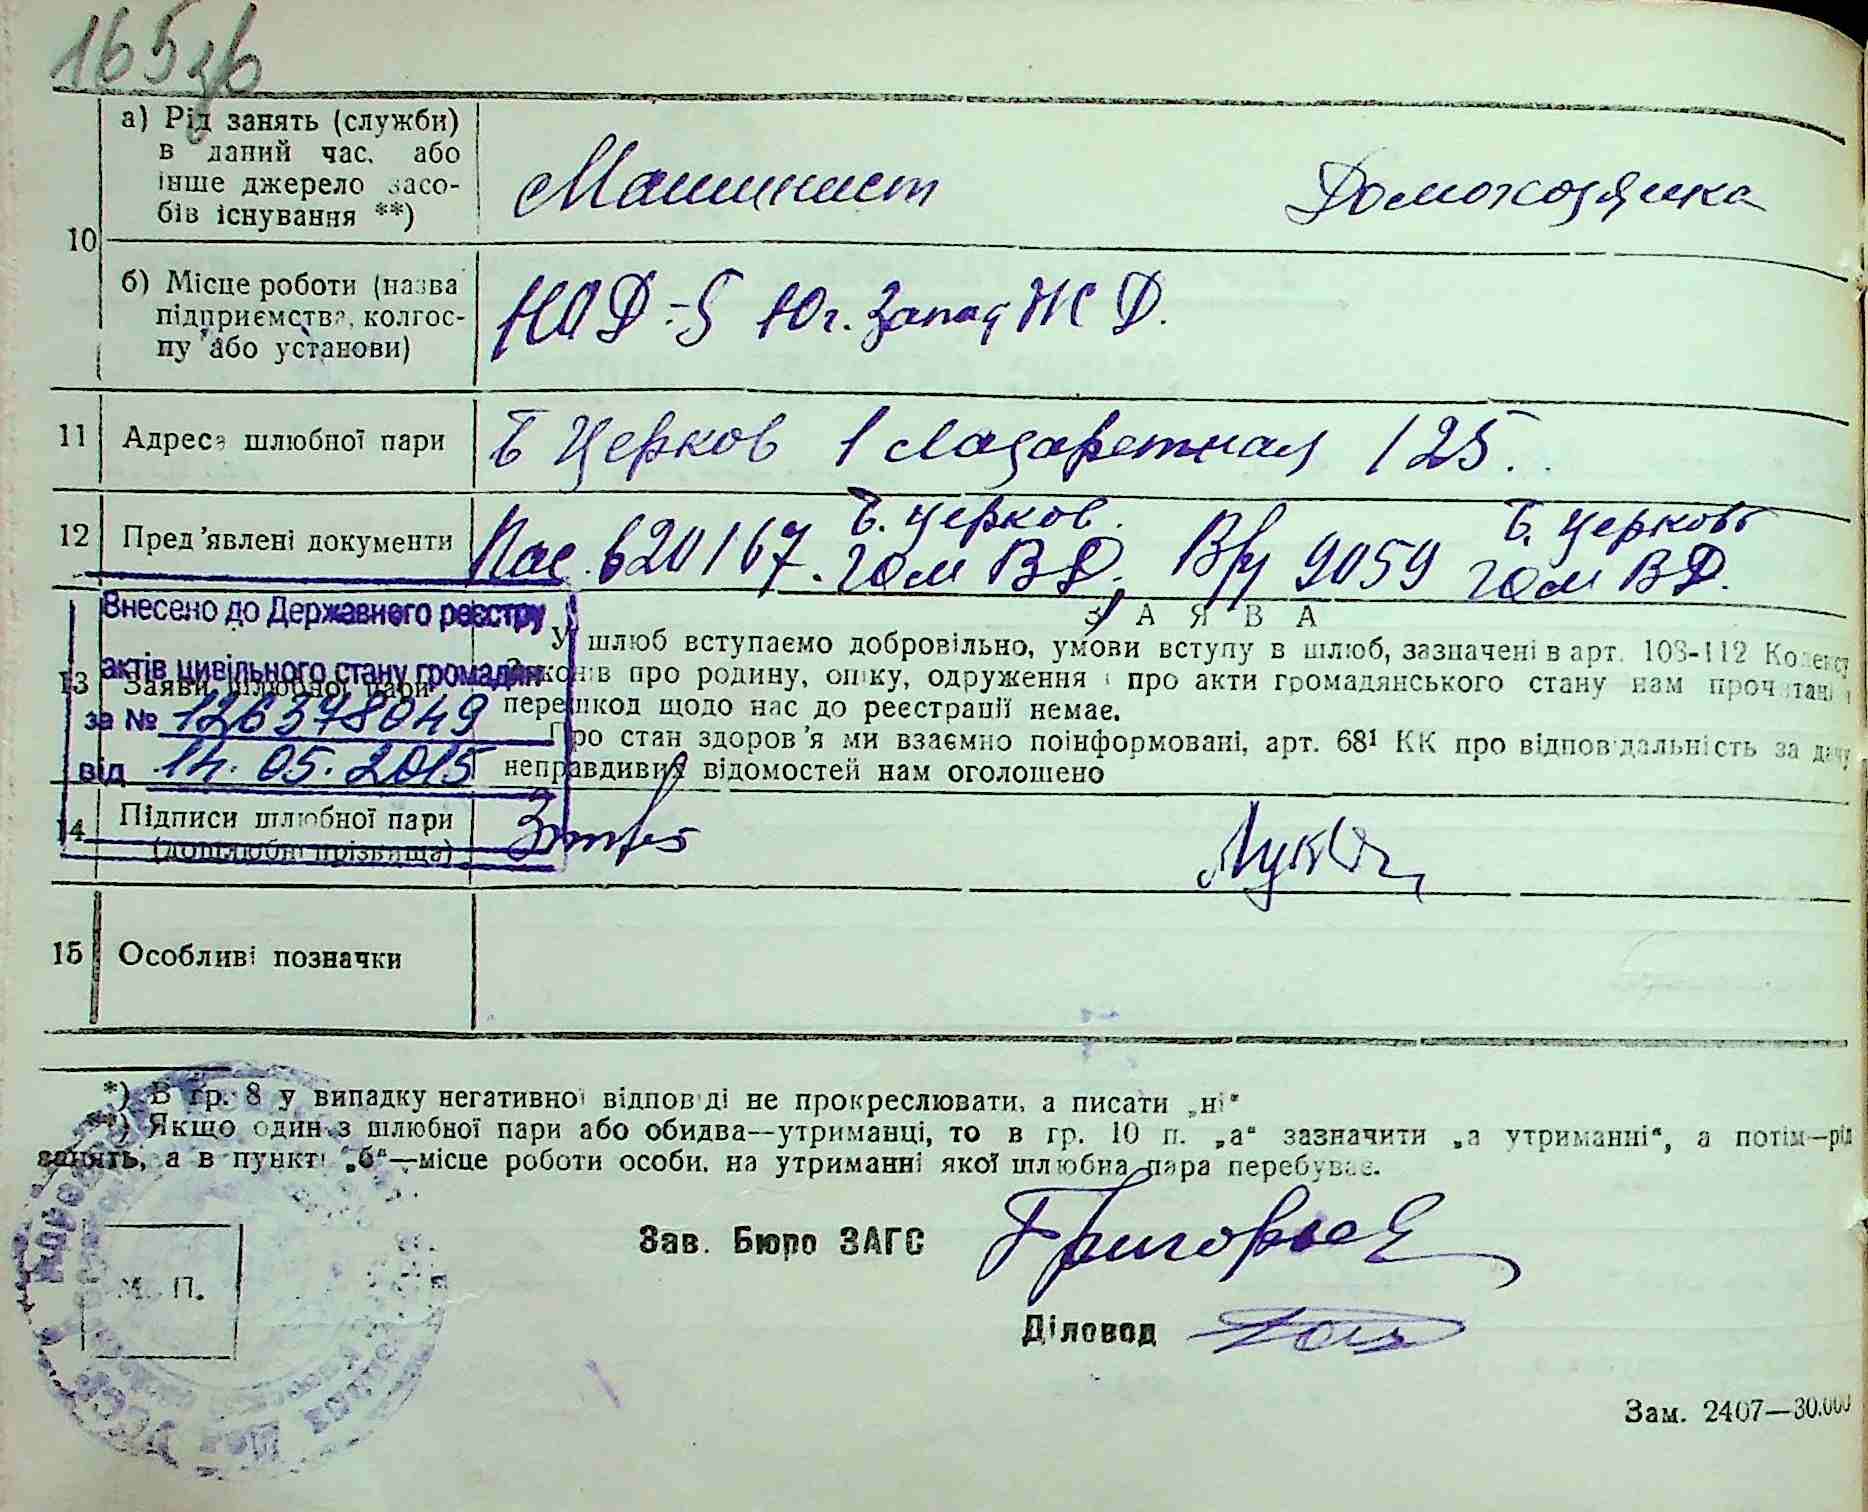 165зв
10
а) Рід занять (служби) в даний час, або інше джерело засобів існування **)
Машинист
Домохозяйка
б) Місце роботи (назва підприємства, колгоспу або установи)
Юг. Запад ЖД.
11 Адреса шлюбної пари
Б Церков 1 Лазаретная 125.
12 Пред'явлені документи
Б. Церков. Б. Церковь
Пас. 620167. ГОМ ВД, Вр/у 9059 ГОМ ВД.
Внесено до Державного реєстру
актів цивільного стану громадян
за № 126378049
від 14.05.2015
13 Заяви шлюбної пари
ЗАЯВА
У шлюб вступаємо добровільно, умови вступу в шлюб, зазначені в арт. 108-112 Кодексу
Законів про родину, опіку, одруження і про акти громадянського стану нам прочитані і
перешкод щодо нас до реєстрації немає.
Про стан здоров'я ми взаємно поінформовані, арт. 68¹ КК про відповідальність за дачу
неправдивих відомостей нам оголошено
14 Підписи шлюбної пари
(дошлюбні прізвища)
15 Особливі позначки
*) В гр. 8 у випадку негативної відповіді не прокреслювати, а писати „ні"
**) Якщо один з шлюбної пари або обидва—утриманці, то в гр. 10 п. „а" зазначити „а утриманні", а потім—рід
занять, а в пункті „б"—місце роботи особи, на утриманні якої шлюбна пара перебуває.
Зав. Бюро ЗАГС Григорьев
М. П.
Діловод
УССР
Зам. 2407—30.000